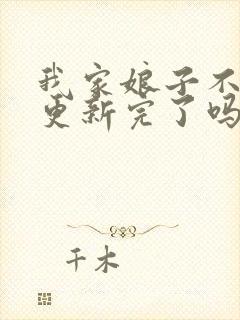 我家娘子不
更新完了吗
千木